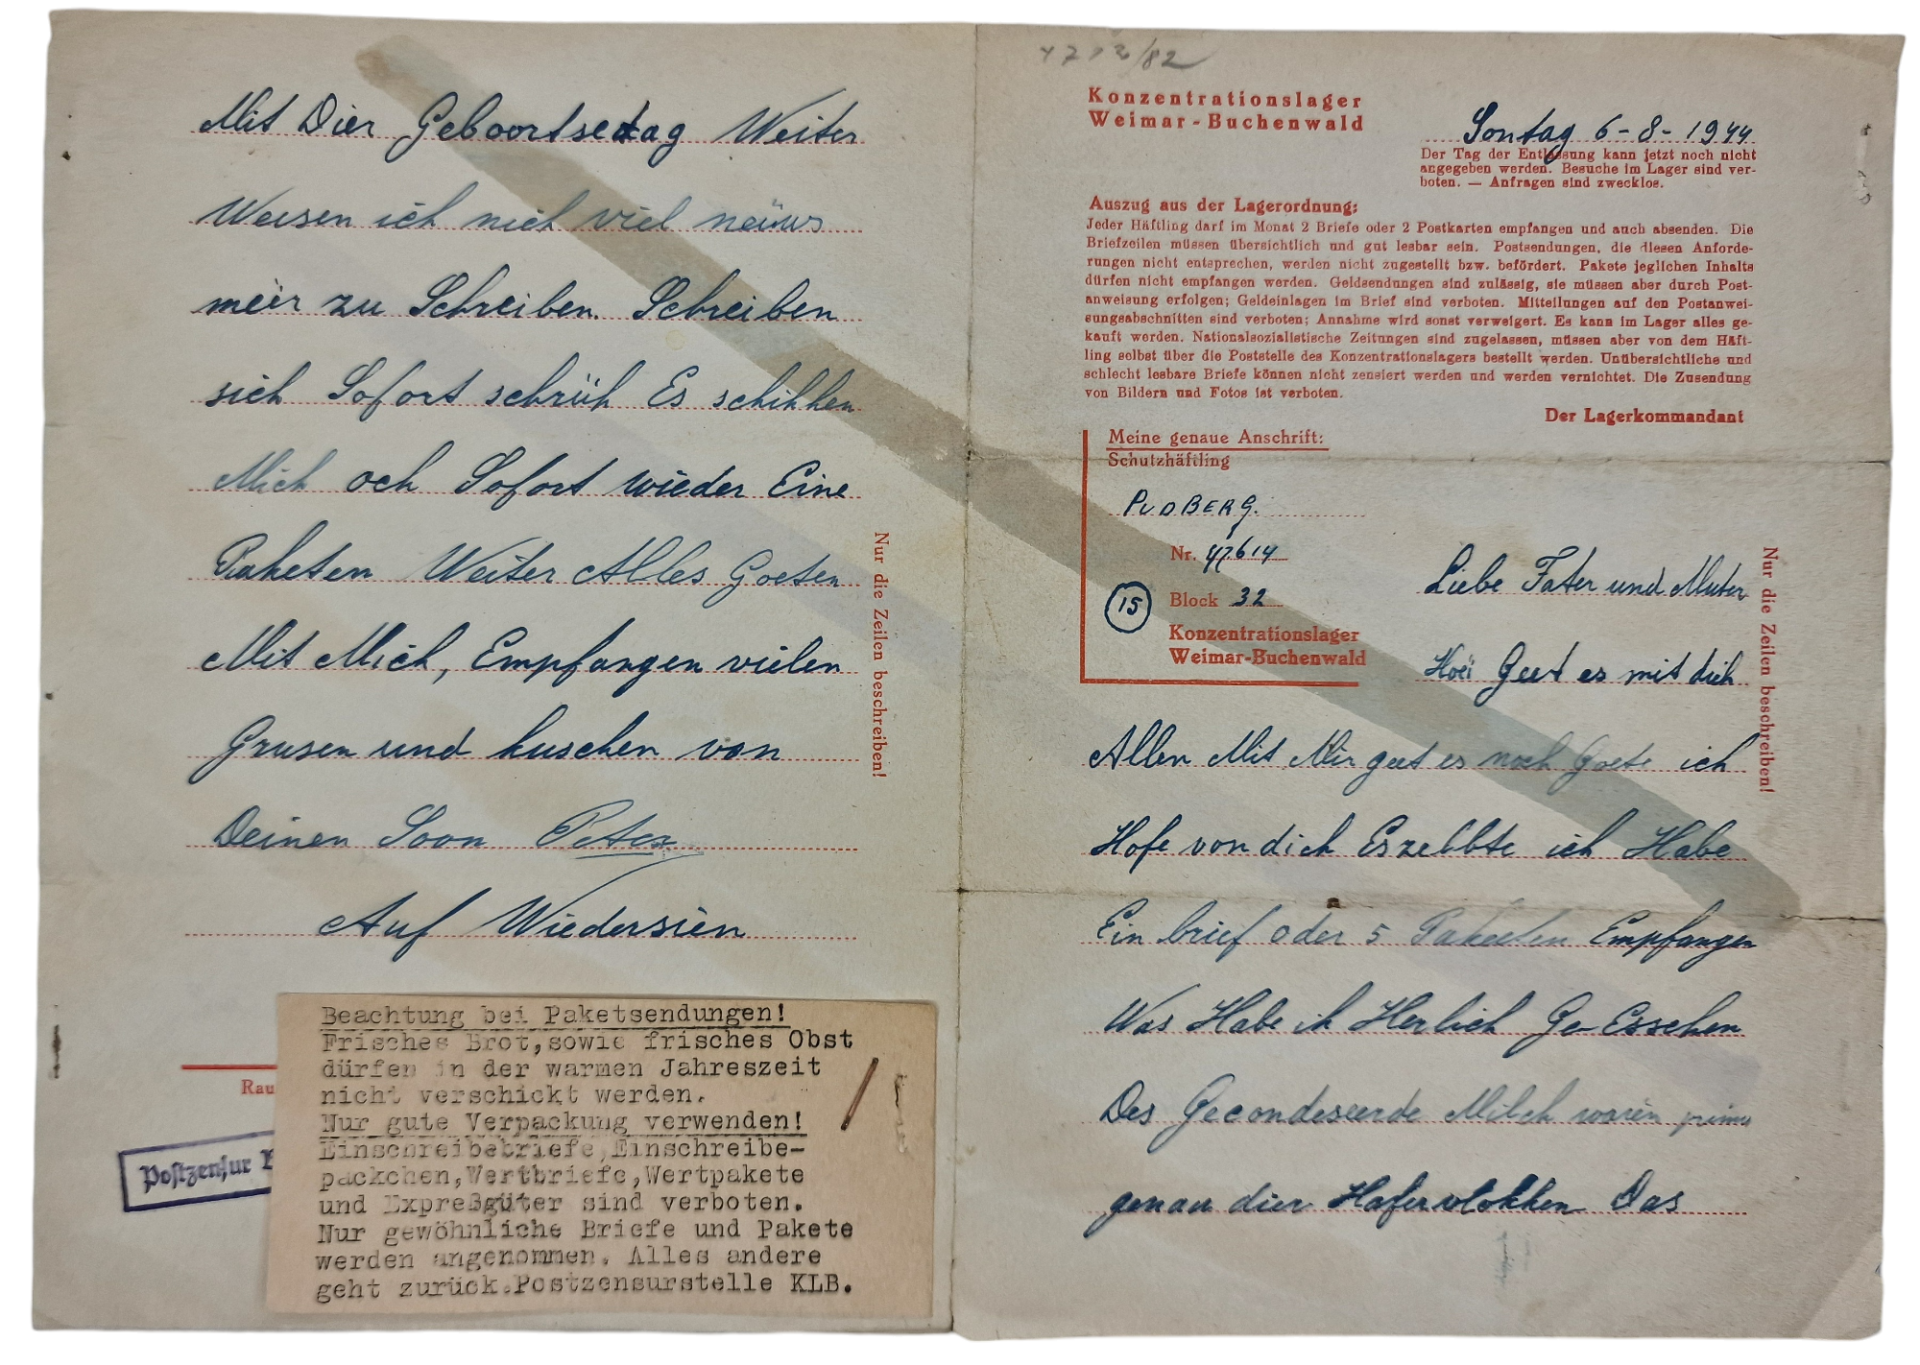 Mit Dier Geboortsetag Weiter
Weisen ich nich viel neius
meer zu Schreiben. Schreiben
sich Sofort schrüh Es schikken
Mich och Sofort wieder Eine
Paketen Weiter Alles Goeten
Mit Mich, Empfangen vielen
Grusen und kuschen von
Deinen Soon Peter
Auf Wiedersien
Nur die Zeilen beschreiben!
Rau
Postzensur
Beachtung bei Paketsendungen!
Frisches Brot, sowie frisches Obst
dürfen in der warmen Jahreszeit
nicht verschickt werden.
Nur gute Verpackung verwenden!
Einschreibebriefe, Einschreibe-
päckchen, Wertbriefe, Wertpakete
und Expreßgüter sind verboten.
Nur gewöhnliche Briefe und Pakete
werden angenommen. Alles andere
geht zurück. Postzensurstelle KLB.
Konzentrationslager
Weimar-Buchenwald
Sontag 6-8-1944
Der Tag der Entlassung kann jetzt noch nicht
angegeben werden. Besuche im Lager sind ver-
boten. — Anfragen sind zwecklos.
Auszug aus der Lagerordnung:
Jeder Häftling darf im Monat 2 Briefe oder 2 Postkarten empfangen und auch absenden. Die
Briefzeilen müssen übersichtlich und gut lesbar sein. Postsendungen, die diesen Anforde-
rungen nicht entsprechen, werden nicht zugestellt bzw. befördert. Pakete jeglichen Inhalts
dürfen nicht empfangen werden. Geldsendungen sind zulässig, sie müssen aber durch Post-
anweisung erfolgen; Geldeinlagen im Brief sind verboten. Mitteilungen auf den Postanwei-
sungsabschnitten sind verboten; Annahme wird sonst verweigert. Es kann im Lager alles ge-
kauft werden. Nationalsozialistische Zeitungen sind zugelassen, müssen aber von dem Häft-
ling selbst über die Poststelle des Konzentrationslagers bestellt werden. Unübersichtliche und
schlecht lesbare Briefe können nicht zensiert werden und werden vernichtet. Die Zusendung
von Bildern und Fotos ist verboten.
Der Lagerkommandant
Meine genaue Anschrift:
Schutzhäftling
PUDBERG.
Nr. 47614
15 Block 32
Konzentrationslager
Weimar-Buchenwald
Liebe Fater und Muter
Hoei Geet es mit dich
Allen Mit Mir geet es noch Goete ich
Hofe von dich Eszelbte ich Habe
Ein brief oder 5 Paketen Empfangen
Was Habe ih Herlich Ge-Esschen
Des Gecondeseerde Milch waren prima
genau dier Hafervlokken Das
Nur die Zeilen beschreiben!